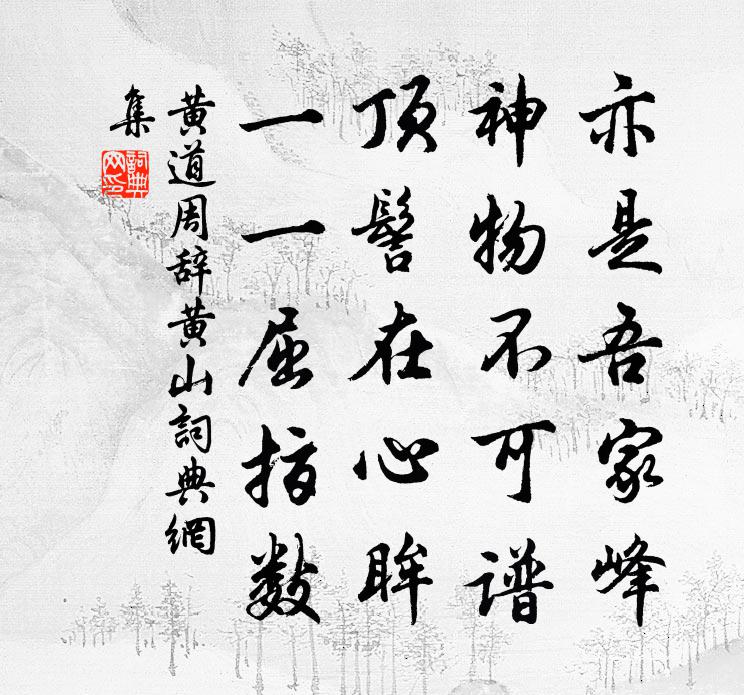 亦是吾家峰
神物不可谱
顶髻在心眸
一一屈指数
黄道周辞黄山詞典網
集
詞典网印